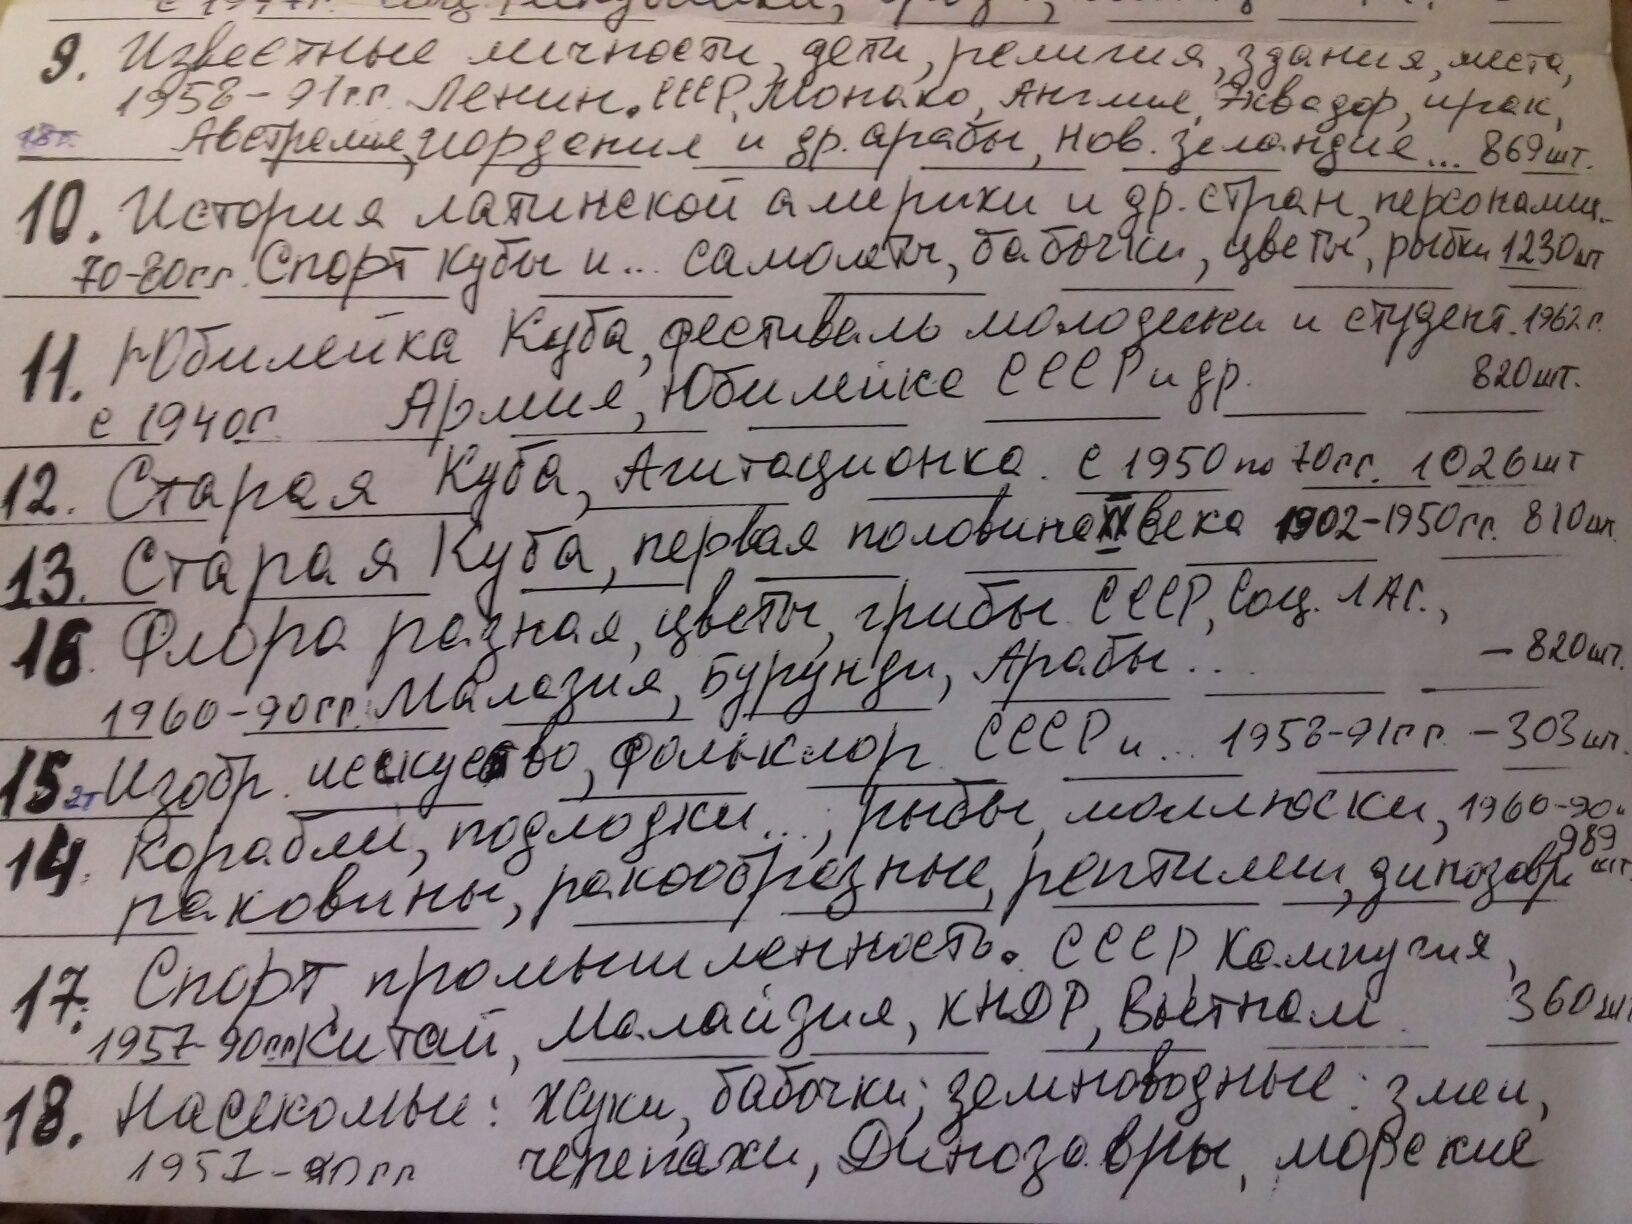 9. Известные личности, дети, религия, здания, места,
1958-91г.г. Ленин. СССР, Монако, Англия, Эквадор, ирак,
18т. Австралия, Иордания и др. арабы, Нов. Зеландия... 869шт.
10. История латинской америки и др. стран, персоналии..
70-80г.г. Спорт Кубы и... самолеты, бабочки, цветы, рыбки 1230шт
11. Юбилейка Куба, фестиваль молодежи и студент. 1962г.
с 1940г. Армия, Юбилейка СССР и др. 820шт.
12. Старая Куба, Агитационка. с 1950 по 70г.г. 1026шт
13. Старая Куба, первая половина XX века 1902-1950г.г. 810шт.
16. Флора разная, цветы, грибы СССР, Соц. ЛАГ.,
1960-90г.г. Малазия, Бурунди, Арабы... -820шт.
15. 2т Изобр. исскуство, фольклор СССР и... 1958-91г.г. -303шт.
14. Корабли, подлодки..., рыбы, моллюски, 1960-90
раковины, ракообразные, рептилии, динозавр. 989 шт.
17. Спорт, промышленность. СССР, Кампучия,
1957-90г.г. Китай, Малайзия, КНДР, Вьетнам. 360шт
18. Насекомые: жуки, бабочки; земноводные: змеи,
1957-90г.г черепахи, Динозавры, морские